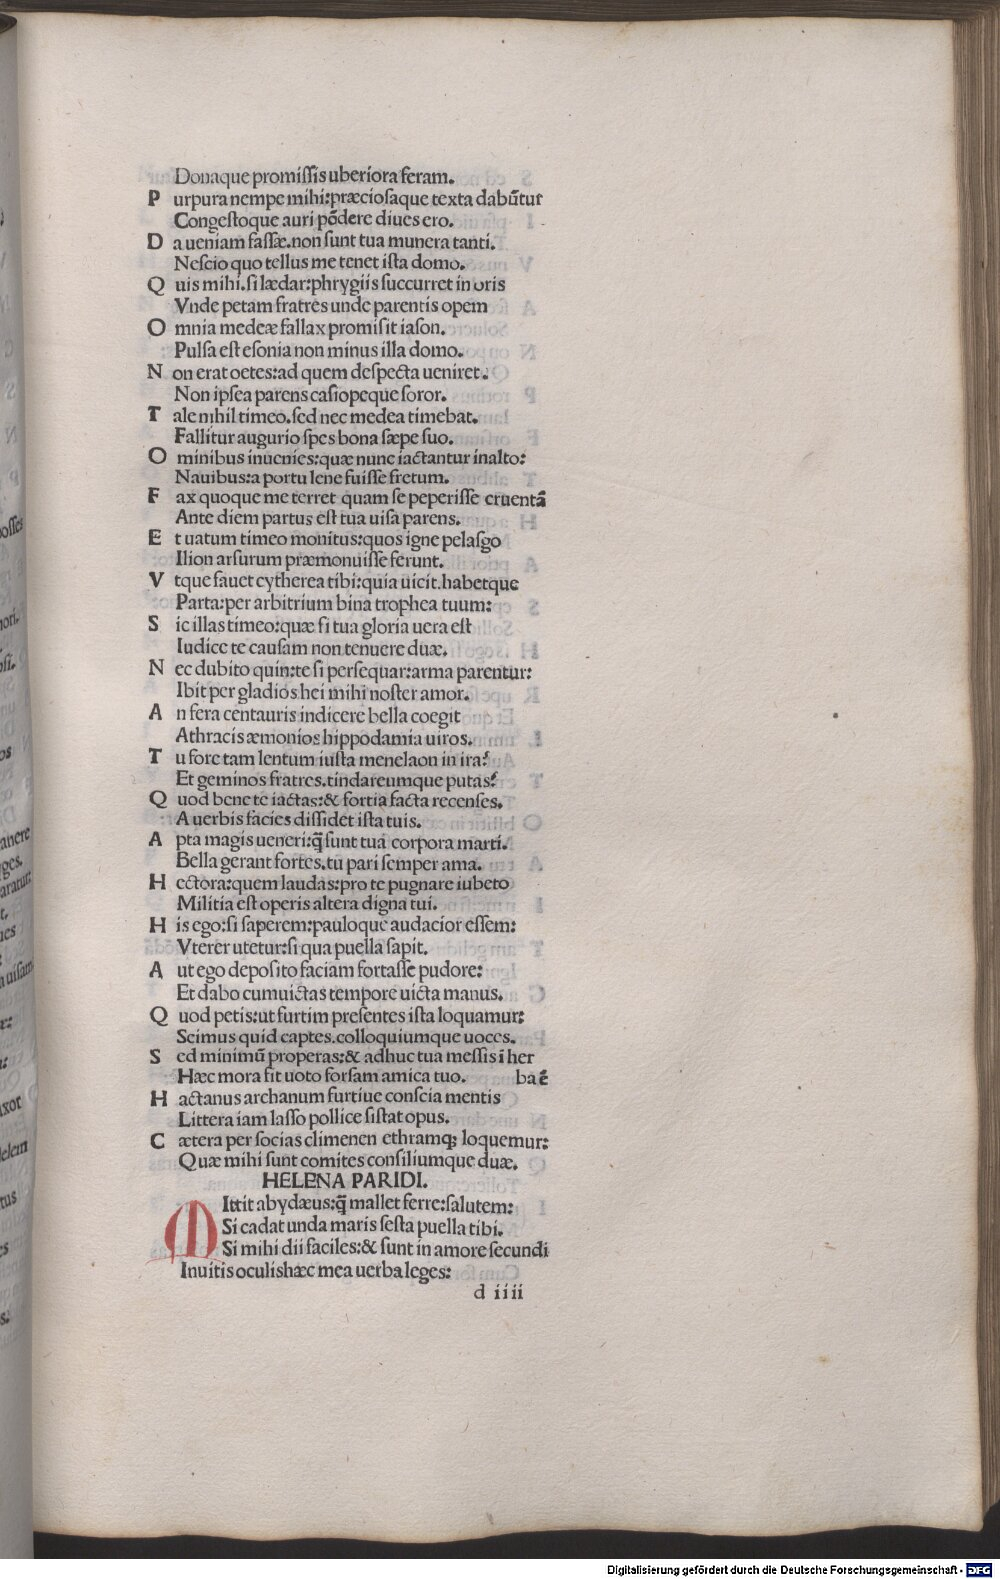 Donaque promissis uberiora feram.
P urpura nempe mihi:præciosaque texta dabūtur
Congestoque auri pōdere diues ero.
D a ueniam fassæ.non sunt tua munera tanti.
Nescio quo tellus me tenet ista domo.
Q uis mihi.si lædar:phrygiis succurret in oris
Vnde petam fratres unde parentis opem
O mnia medeæ fallax promisit iason.
Pulsa est esonia non minus illa domo.
N on erat oetes:ad quem despecta ueniret.
Non ipsea parens casiopeque soror.
T ale nihil timeo.sed nec medea timebat.
Fallitur augurio spes bona sæpe suo.
O minibus inuenies:quæ nunc iactantur in alto:
Nauibus:a portu lene fuisse fretum.
F ax quoque me terret quam se peperisse cruentā
Ante diem partus est tua uisa parens.
E t uatum timeo monitus:quos igne pelasgo
Ilion arsurum præmonuisse ferunt.
V tque fauet cytherea tibi:quia uicit.habetque
Parta:per arbitrium bina trophea tuum:
S ic illas timeo:quæ si tua gloria uera est
Iudice te causam non tenuere duæ.
N ec dubito quin:te si persequar:arma parentur:
Ibit per gladios hei mihi noster amor.
A n fera centauris indicere bella coegit
Athracis æmonios hippodamia uiros.
T u fore tam lentum iusta menelaon in ira?
Et geminos fratres.tindareumque putas?
Q uod bene te iactas:& fortia facta recenses.
A uerbis facies dissidet ista tuis.
A pta magis ueneri:q̄ sunt tua corpora marti.
Bella gerant fortes.tu pari semper ama.
H ectora:quem laudas:pro te pugnare iubeto
Militia est operis altera digna tui.
H is ego:si saperem:pauloque audacior essem:
Vterer utetur:si qua puella sapit.
A ut ego deposito faciam fortasse pudore:
Et dabo cumuictas tempore uicta manus.
Q uod petis:ut furtim presentes ista loquamur:
Scimus quid captes.colloquiumque uoces.
S ed minimū properas:& adhuc tua messis ī her
Hæc mora fit uoto forsam amica tuo. ba ē
H actanus archanum furtiue conscia mentis
Littera iam lasso pollice sistat opus.
C ætera per socias climenen ethramq; loquemur:
Quæ mihi sunt comites consiliumque duæ.
HELENA PARIDI.
M Ittit abydæus:q̄ mallet ferre:salutem:
Si cadat unda maris sesta puella tibi.
Si mihi dii faciles:& sunt in amore secundi
Inuitis oculis hæc mea uerba leges:
d iiii
Digitalisierung gefördert durch die Deutsche Forschungsgemeinschaft - DFG